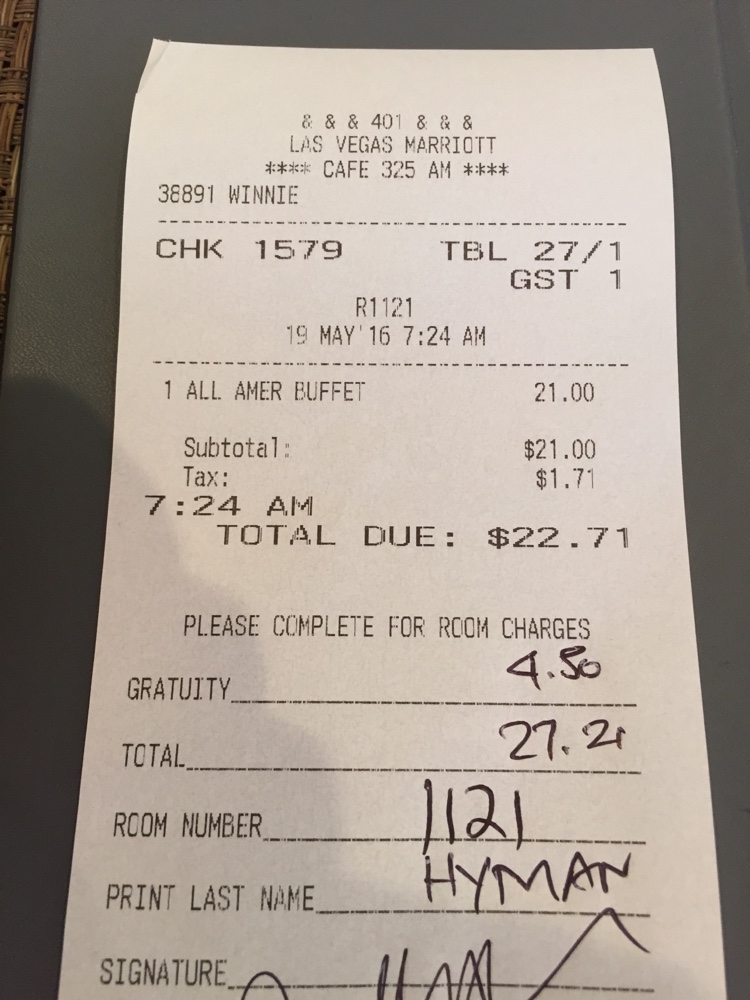 & & & 401 & & &
LAS VEGAS MARRIOTT
**** CAFE 325 AM ****
38891 WINNIE
CHK 1579 TBL 27/1
GST 1
R1121
19 MAY'16 7:24 AM
1 ALL AMER BUFFET 21.00
Subtotal: $21.00
Tax: $1.71
7:24 AM
TOTAL DUE: $22.71
PLEASE COMPLETE FOR ROOM CHARGES
GRATUITY 4.50
TOTAL 27.21
ROOM NUMBER 1121
PRINT LAST NAME HYMAN
SIGNATURE